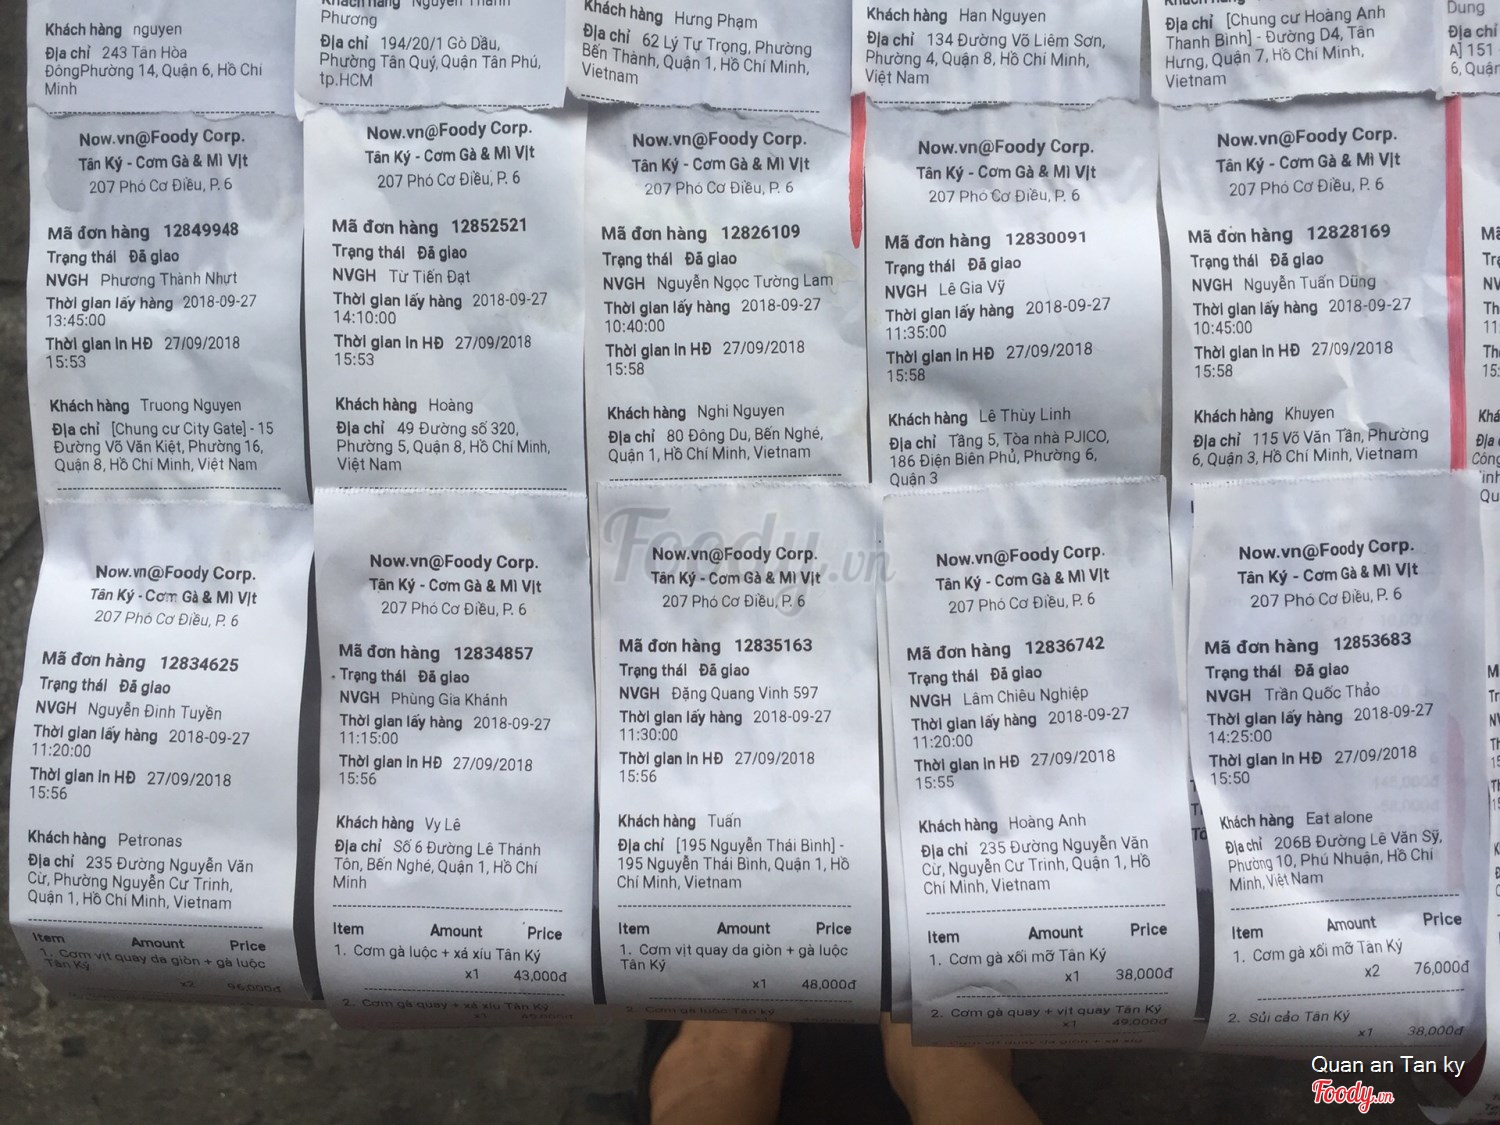 Khách hàng nguyen
Địa chỉ 243 Tân Hòa
ĐôngPhường 14, Quận 6, Hồ Chí
Minh
Phương
Địa chỉ 194/20/1 Gò Dầu,
Phường Tân Quý, Quận Tân Phú,
tp.HCM
Khách hàng Hưng Phạm
Địa chỉ 62 Lý Tự Trọng, Phường
Bến Thành, Quận 1, Hồ Chí Minh,
Vietnam
Khách hàng Han Nguyen
Địa chỉ 134 Đường Võ Liêm Sơn,
Phường 4, Quận 8, Hồ Chí Minh,
Việt Nam
Địa chỉ [Chung cư Hoàng Anh
Thanh Bình] - Đường D4, Tân
Hưng, Quận 7, Hồ Chí Minh,
Vietnam
Dung
Địa chỉ
A] 151
6, Quận
Now.vn@Foody Corp.
Tân Ký - Cơm Gà & Mì Vịt
207 Phó Cơ Điều, P. 6
Mã đơn hàng 12849948
Trạng thái Đã giao
NVGH Phương Thành Nhựt
Thời gian lấy hàng 2018-09-27
13:45:00
Thời gian in HĐ 27/09/2018
15:53
Khách hàng Truong Nguyen
Địa chỉ [Chung cư City Gate] - 15
Đường Võ Văn Kiệt, Phường 16,
Quận 8, Hồ Chí Minh, Việt Nam
Now.vn@Foody Corp.
Tân Ký - Cơm Gà & Mì Vịt
207 Phó Cơ Điều, P. 6
Mã đơn hàng 12852521
Trạng thái Đã giao
NVGH Từ Tiến Đạt
Thời gian lấy hàng 2018-09-27
14:10:00
Thời gian in HĐ 27/09/2018
15:53
Khách hàng Hoàng
Địa chỉ 49 Đường số 320,
Phường 5, Quận 8, Hồ Chí Minh,
Việt Nam
Now.vn@Foody Corp.
Tân Ký - Cơm Gà & Mì Vịt
207 Phó Cơ Điều, P. 6
Mã đơn hàng 12826109
Trạng thái Đã giao
NVGH Nguyễn Ngọc Tường Lam
Thời gian lấy hàng 2018-09-27
10:40:00
Thời gian in HĐ 27/09/2018
15:58
Khách hàng Nghi Nguyen
Địa chỉ 80 Đông Du, Bến Nghé,
Quận 1, Hồ Chí Minh, Vietnam
Now.vn@Foody Corp.
Tân Ký - Cơm Gà & Mì Vịt
207 Phó Cơ Điều, P. 6
Mã đơn hàng 12830091
Trạng thái Đã giao
NVGH Lê Gia Vỹ
Thời gian lấy hàng 2018-09-27
11:35:00
Thời gian in HĐ 27/09/2018
15:58
Khách hàng Lê Thùy Linh
Địa chỉ Tầng 5, Tòa nhà PJICO,
186 Điện Biên Phủ, Phường 6,
Quận 3
Now.vn@Foody Corp.
Tân Ký - Cơm Gà & Mì Vịt
207 Phó Cơ Điều, P. 6
Mã đơn hàng 12828169
Trạng thái Đã giao
NVGH Nguyễn Tuấn Dũng
Thời gian lấy hàng 2018-09-27
10:45:00
Thời gian in HĐ 27/09/2018
15:58
Khách hàng Khuyen
Địa chỉ 115 Võ Văn Tần, Phường
6, Quận 3, Hồ Chí Minh, Vietnam
Now.vn@Foody Corp.
Tân Ký - Cơm Gà & Mì Vịt
207 Phó Cơ Điều, P. 6
Mã đơn hàng 12834625
Trạng thái Đã giao
NVGH Nguyễn Đinh Tuyền
Thời gian lấy hàng 2018-09-27
11:20:00
Thời gian in HĐ 27/09/2018
15:56
Khách hàng Petronas
Địa chỉ 235 Đường Nguyễn Văn
Cừ, Phường Nguyễn Cư Trinh,
Quận 1, Hồ Chí Minh, Vietnam
Item Amount Price
1. Cơm vịt quay da giòn + gà luộc
Tân Ký
x2 96,000đ
Now.vn@Foody Corp.
Tân Ký - Cơm Gà & Mì Vịt
207 Phó Cơ Điều, P. 6
Mã đơn hàng 12834857
Trạng thái Đã giao
NVGH Phùng Gia Khánh
Thời gian lấy hàng 2018-09-27
11:15:00
Thời gian in HĐ 27/09/2018
15:56
Khách hàng Vy Lê
Địa chỉ Số 6 Đường Lê Thánh
Tôn, Bến Nghé, Quận 1, Hồ Chí
Minh
Item Amount Price
1. Cơm gà luộc + xá xíu Tân Ký
x1 43,000đ
2. Cơm gà quay + xá xíu Tân Ký
x1
Now.vn@Foody Corp.
Tân Ký - Cơm Gà & Mì Vịt
207 Phó Cơ Điều, P. 6
Mã đơn hàng 12835163
Trạng thái Đã giao
NVGH Đặng Quang Vinh 597
Thời gian lấy hàng 2018-09-27
11:30:00
Thời gian in HĐ 27/09/2018
15:56
Khách hàng Tuấn
Địa chỉ [195 Nguyễn Thái Bình] -
195 Nguyễn Thái Bình, Quận 1, Hồ
Chí Minh, Vietnam
Item Amount Price
1. Cơm vịt quay da giòn + gà luộc
Tân Ký
x1 48,000đ
2. Cơm gà luộc Tân ký
Now.vn@Foody Corp.
Tân Ký - Cơm Gà & Mì Vịt
207 Phó Cơ Điều, P. 6
Mã đơn hàng 12836742
Trạng thái Đã giao
NVGH Lâm Chiêu Nghiệp
Thời gian lấy hàng 2018-09-27
11:20:00
Thời gian in HĐ 27/09/2018
15:55
Khách hàng Hoàng Anh
Địa chỉ 235 Đường Nguyễn Văn
Cừ, Nguyễn Cư Trinh, Quận 1, Hồ
Chí Minh, Vietnam
Item Amount Price
1. Cơm gà xối mỡ Tân Ký
x1 38,000đ
2. Cơm gà quay + vịt quay Tân Ký
x1 49,000đ
Now.vn@Foody Corp.
Tân Ký - Cơm Gà & Mì Vịt
207 Phó Cơ Điều, P. 6
Mã đơn hàng 12853683
Trạng thái Đã giao
NVGH Trần Quốc Thảo
Thời gian lấy hàng 2018-09-27
14:25:00
Thời gian in HĐ 27/09/2018
15:50
Khách hàng Eat alone
Địa chỉ 206B Đường Lê Văn Sỹ,
Phường 10, Phú Nhuận, Hồ Chí
Minh, Việt Nam
Item Amount Price
1. Cơm gà xối mỡ Tân Ký
x2 76,000đ
2. Sủi cảo Tân Ký
x1 38,000đ
Foody.vn
Quan an Tan ky
Foody.vn